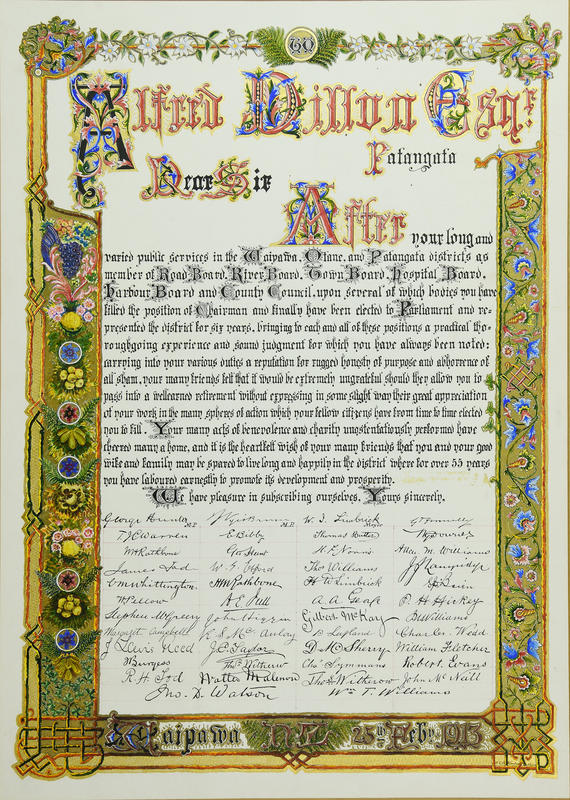 TO
Alfred Dillon Esqr.
Patangata
Dear Sir
After
your long and
varied public services in the Waipawa, Olane, and Patangata districts as
member of Road Board, River Board, Town Board, Hospital Board,
Harbour Board and County Council, upon several of which bodies you have
filled the position of Chairman and finally have been elected to Parliament and re-
presented the district for six years, bringing to each and all of these positions a practical tho-
roughgoing experience and sound judgment for which you have always been noted:
carrying into your various duties a reputation for rugged honesty of purpose and abhorrence of
all sham, your many friends felt that it would be extremely ungrateful should they allow you to
pass into a wellearned retirement without expressing in some slight way their great appreciation
of your work in the many spheres of action which your fellow citizens have from time to time elected
you to fill. Your many acts of benevolence and charity unostentatiously performed have
cheered many a home, and it is the heartfelt wish of your many friends that you and your good
wife and family may be spared to live long and happily in the district where for over 55 years
you have laboured earnestly to promote its development and prosperity.
We have pleasure in subscribing ourselves, Yours sincerely,
George Hunter M.P. M.P. W. J. Limbrick Mayor
T. J. C. Warren E. Bibby Thomas Butler
W. Rathbone Geo. Hunt H. F. Norris Allen M. Williams
James Tod W. G. Elford Thos Williams
C. M. Whittington H. M. Rathbone H. W. Limbrick D. Bain
W. Pellow A. E. Jull A. A. George P. H. Hickey
Stephen McGreevy John Higgin Gilbert McKay B. Williams
Margaret Campbell E. S. McAuley Charles Wedd
J. Lewis Reed J. C. Taylor D. McSherry William Fletcher
W. Burgess Thos. Witherow Chas Symmans Robert Evans
R. H. Tod Walter Malenoir Thos Witherow John McNeill
Jno. D. Watson Wm T. Williams
Waipawa N.Z. 25th Feby 1913